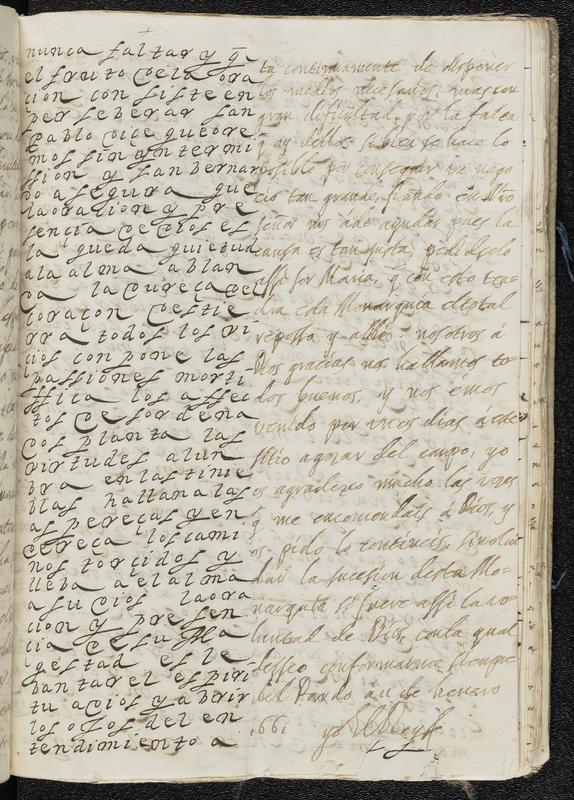 nunca faltar y q̃
el fruto de la ora
cion consiste en
perseberar san
Pablo dice que ore
mos sin yntermi
ssion y san bernar
do asegura que
la oracion y pre
sencia de dios es
la queda quietud
a la alma ablan
da la dureça de
coraçon destie
rra todos los vi
cios conpone las
passiones morti
ffica los affec
tos desordena
dos planta las
virtudes alun
bra en las tinie
blas hallana las
aspereças y en
dereça los cami
nos torcidos y
lleba a el alma
a su dios la ora
cion y presen
cia de su Ma
gestad es le
bantar el espiri
tu a dios y abrir
los ojos del en
tendimiento a
ta continuamente de disponer
los medios necesarios, mas con
gran dificultad, por la falta
q̃ ay dellos, si bien se hace lo
posible por conseguir un nego
cio tan grande, fiando en Nro
señor nos a de ayudar pues la
causa es tan justa, pedidselo
assi Sor Maria, q̃ con esto ten-
dra esta Monarquia el total
reposso y alibio nosotros á
Dios gracias nos hallamos to-
dos buenos, y nos emos
venido por unos dias á este
sitio a goçar del campo, yo
os agradezco mucho las veces
q̃ me encomendais á Dios, y
os pido lo continueis, sin olui
dar la sucesion desta Mo-
narquia si fuere assi la vo-
luntad de Dios, con la qual
desseo conformarme siempre
del Pardo á de henero
1661 yo el Rey